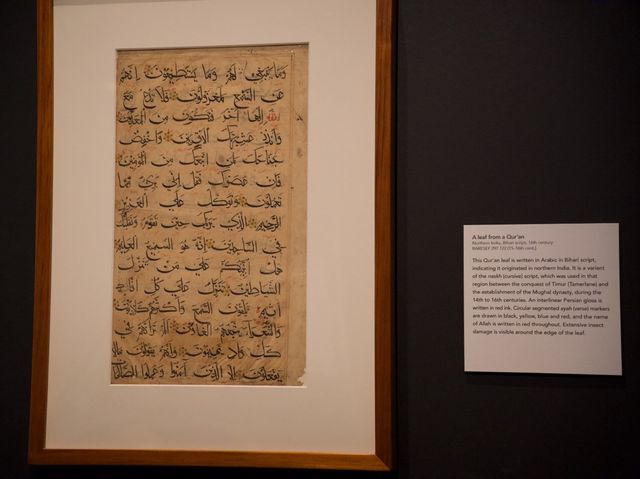 وما ينبغي لهم وما يستطيعون انهم
عن السمع لمعزولون فلا تدع مع
الله الها آخر فتكون من المعذبين
وانذر عشيرتك الاقربين واخفض
جناحك لمن اتبعك من المؤمنين
فان عصوك فقل اني بريء مما
تعملون وتوكل على العزيز
الرحيم الذي يراك حين تقوم وتقلبك
في الساجدين انه هو السميع العليم
هل انبئكم على من تنزل
الشياطين تنزل على كل افاك
اثيم يلقون السمع واكثرهم كاذبون
والشعراء يتبعهم الغاوون الم تر انهم في
كل واد يهيمون وانهم يقولون ما لا
يفعلون الا الذين آمنوا وعملوا الصالحا
A leaf from a Qur'an
Northern India, Bihari script, 16th century
RARESEF 297.122 [15-16th cent.]
This Qur'an leaf is written in Arabic in Bihari script,
indicating it originated in northern India. It is a variant
of the naskh (cursive) script, which was used in that
region between the conquest of Timur (Tamerlane) and
the establishment of the Mughal dynasty, during the
14th to 16th centuries. An interlinear Persian gloss is
written in red ink. Circular segmented ayah (verse) markers
are drawn in black, yellow, blue and red, and the name
of Allah is written in red throughout. Extensive insect
damage is visible around the edge of the leaf.